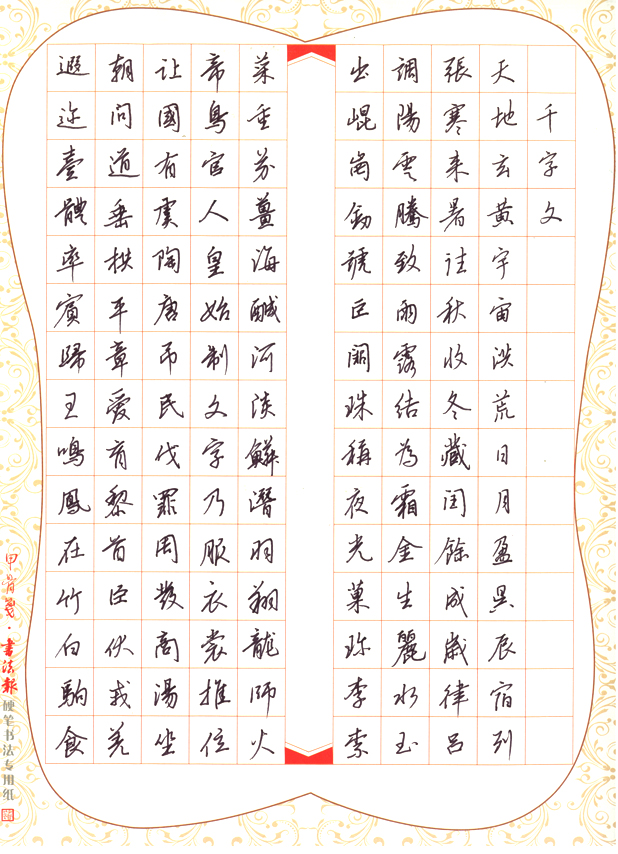 千字文
天地玄黄宇宙洪荒日月盈昃辰宿列
張寒来暑往秋收冬藏闰餘成歲律吕
調陽雲騰致雨露结為霜金生麗水玉
出崐崗劒號巨阙珠稱夜光菓珍李柰
菜重芥薑海鹹河淡鱗潛羽翔龍師火
帝鳥官人皇始制文字乃服衣裳推位
让國有虞陶唐吊民伐罪周發商湯坐
朝問道垂拱平章爱育黎首臣伏戎羌
遐迩壹體率賓歸王鳴鳳在竹白駒食
甲骨笺·書法報 硬笔书法专用纸